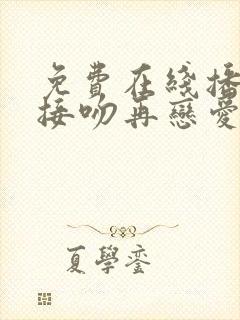 免費在綫播
接吻再戀愛
夏學鑾